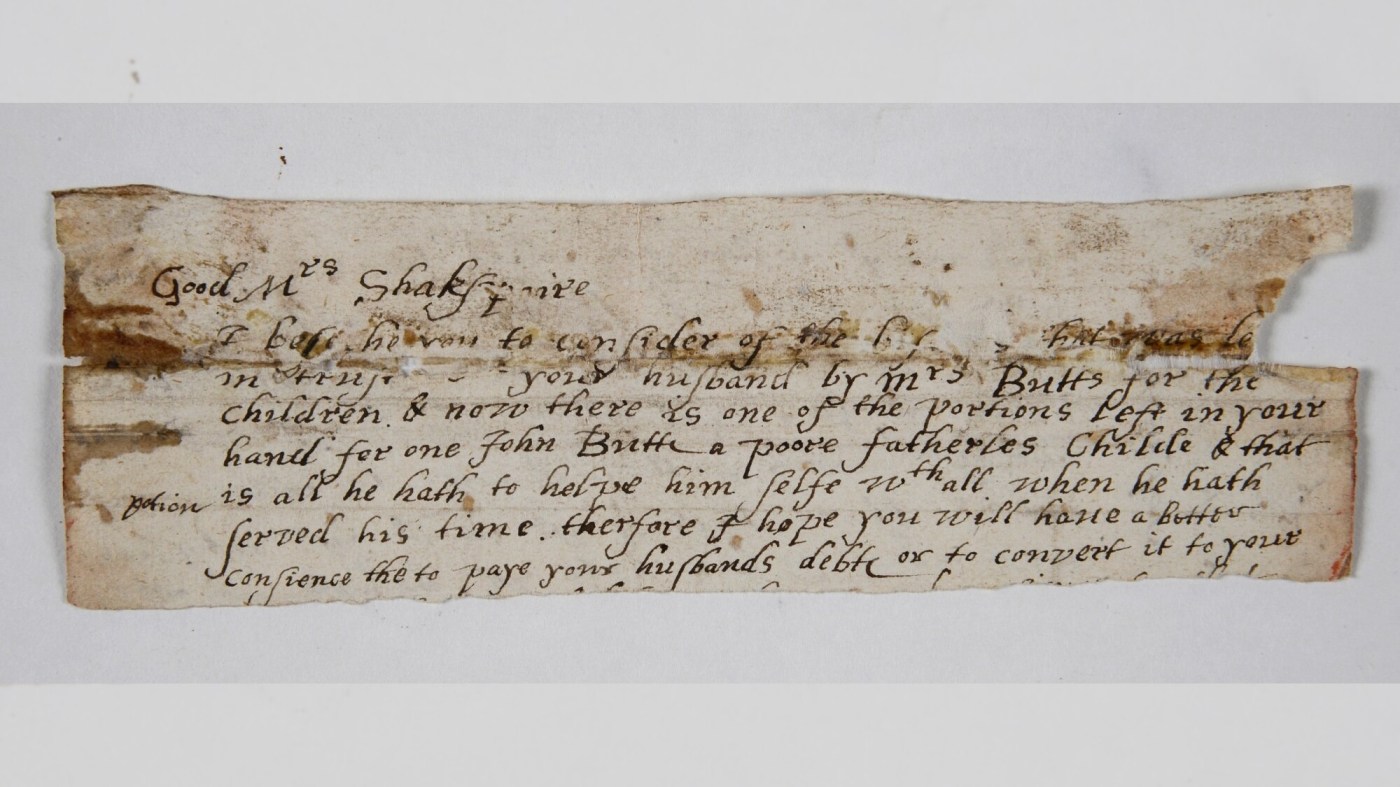 Good Mrs Shakspaire
I bese he you to consider of the that was le
in trust your husband by mrs Butts for the
children & now there is one of the portions left in your
hand for one John Butte a poore fatherles Childe & that
potion is all he hath to helpe him selfe wth all when he hath
served his time. therfore I hope you will haue a better
Consience the to paye your husbands debte or to convert it to your